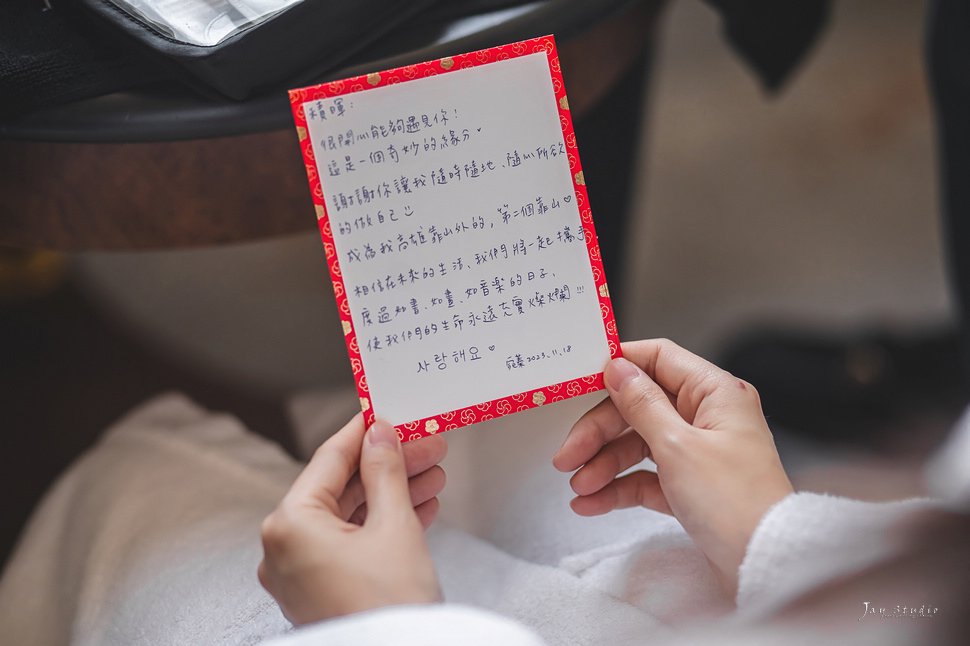 積暉：
很開心能夠遇見你！
這是一個奇妙的緣分。
謝謝你讓我隨時隨地、隨心所欲
的做自己
成為我高雄靠山外的，第二個靠山♡
相信在未來的生活，我們將一起攜手
度過如書、如畫、如音樂的日子，
使我們的生命永遠充實燦爛!!!
사랑해요♡
2023.11.18
Jay Studio